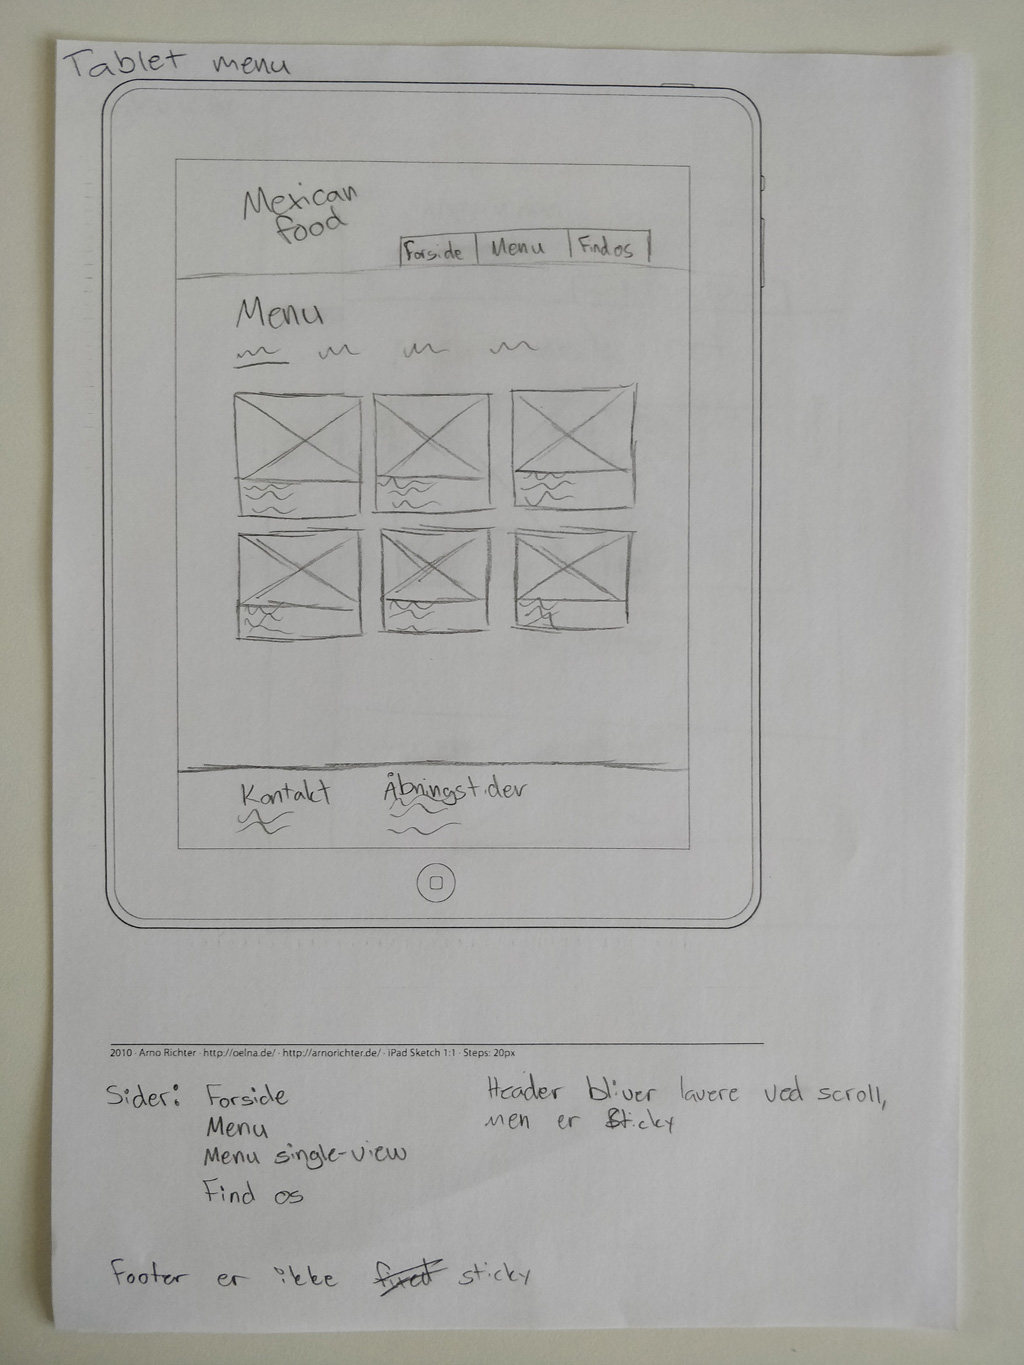 Tablet menu
Mexican
food
Forside Menu Find os
Menu
Kontakt Åbningstider
2010 · Arno Richter · http://oelna.de/ · http://arnorichter.de/ · iPad Sketch 1:1 · Steps: 20px
Sider: Forside
Menu
Menu single-view
Find os
Header bliver lavere ved scroll,
men er sticky
Footer er ikke fixed sticky